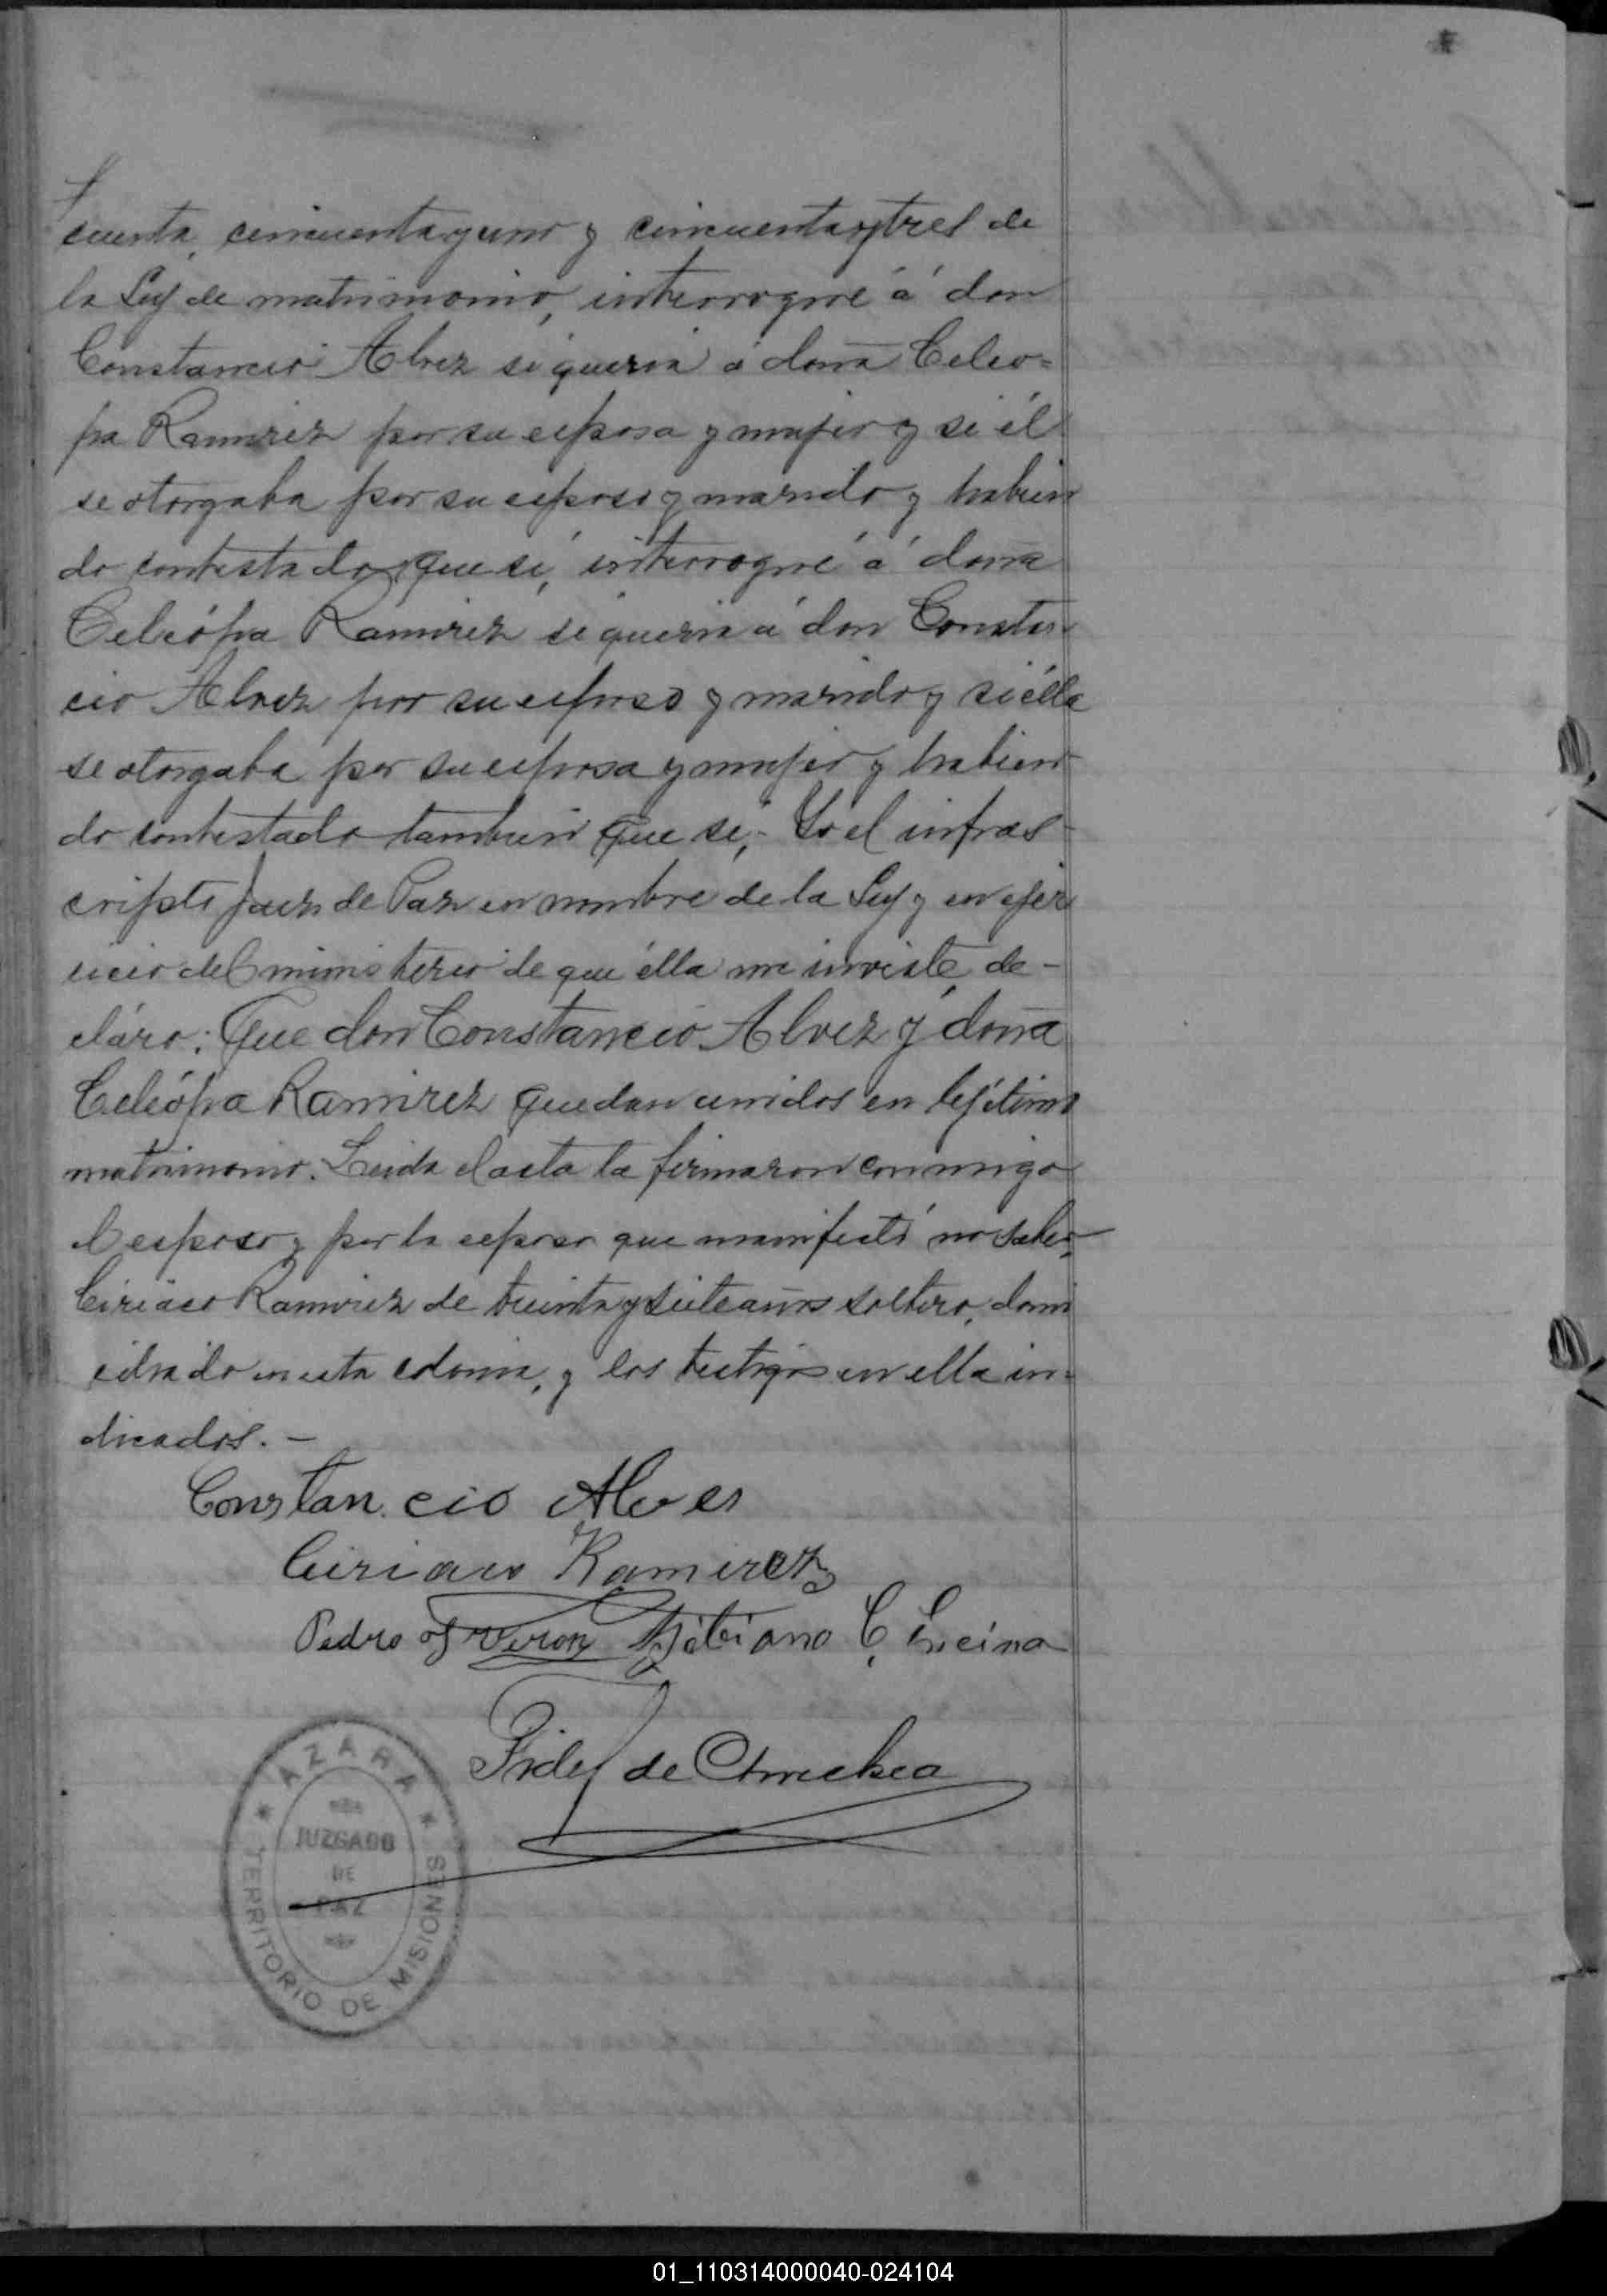 cuenta, cincuenta y uno y cincuenta y tres de
la Ley de matrimonio, interrogué á don
Constancio Alvez si queria á doña Celeo-
pa Ramirez por su esposa y mujer y si él
se otorgaba por su esposo y marido y habien
do contestado que si, interrogué á doña
Celeópa Ramirez si queria á don Constan
cio Alvez por su esposo y marido y si élla
se otorgaba por su esposa y mujer y habien
do contestado tambien que si,- Yo el infras-
cripto Juez de Paz en nombre de la Ley y en ejer
cicio del ministerio de que élla me inviste, de-
cláro: Que don Constancio Alvez y doña
Celeópa Ramirez quedan unidos en lejítimo
matrimonio. Leida el acta la firmaron conmigo
el esposo y por la esposa que manifestó no saber,
Ciriaco Ramirez de treinta y siete años soltero, domi
ciliado en esta colonia, y los testigos en ella in-
dicados.-
Constancio Alves
Ciriaco Ramirez
Pedro Veron Bibiano C. Encina
Fidel de
* AZARA *
JUZGADO
DE
PAZ
TERRITORIO DE MISIONES
01_110314000040-024104